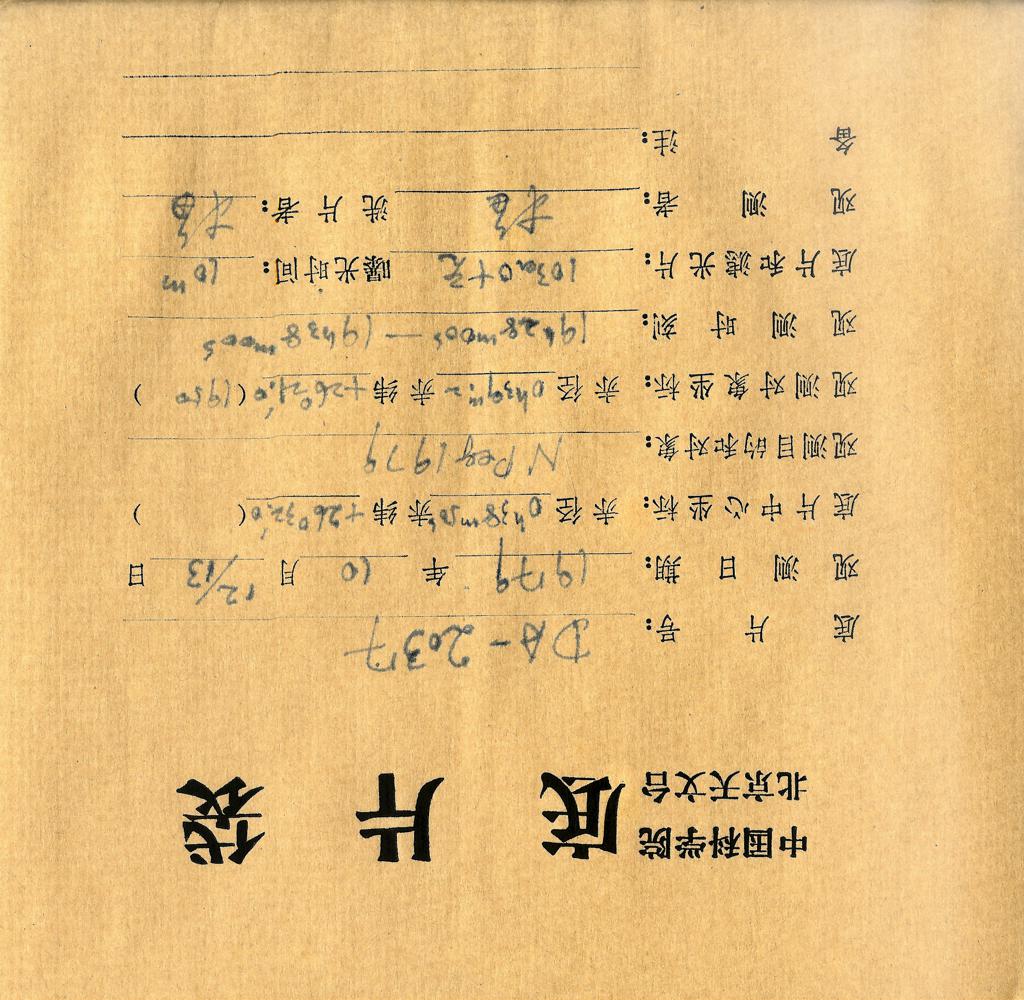 中国科学院
北京天文台 底片袋
底片号: DA-2037
观测日期: 1979年10月12/13日
底片中心坐标: 赤径 0h38m50s 赤纬 +26°32.'0 ( )
观测目的和对象: N Peg 1979
观测对象坐标: 赤径 0h39m.2 赤纬 +26°21.'0 (1950)
观测时刻: 19h28m00s — 19h38m00s
底片和滤光片: 103aO+ 曝光时间: 10m
观测者: 洗片者:
备注: